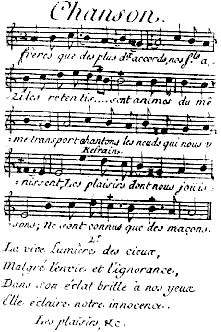 Chanson.
frères que des plus d'accords, nos
-ziles retentis....sent animés du mê
me transport chantons les neuds qui nous u
Refrain.
nissent, Les plaisirs dont nous jouis
sons, Ne sont connus que des maçons.
2e
La vive lumières des cieux,
Malgré l'envie et l'ignorance,
Dans son éclat brille à nos yeux
Elle éclaire notre innocence.
Les plaisirs, &c.